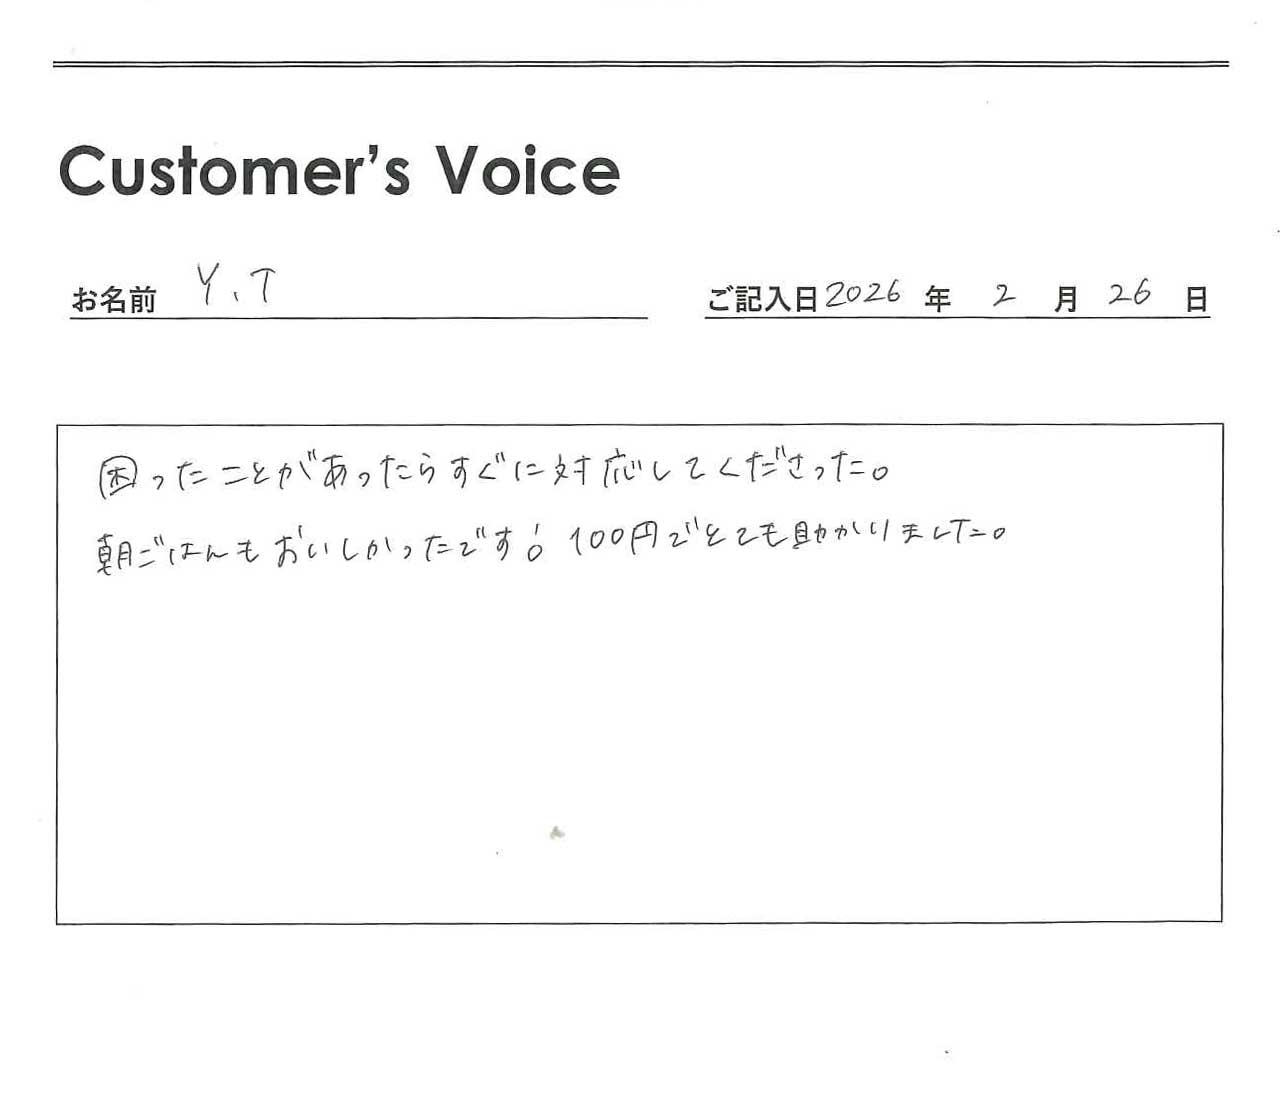 Customer's Voice
お名前 Y.T ご記入日 2026 年 2 月 26 日
困ったことがあったらすぐに対応してくださった。
朝ごはんもおいしかったです! 100円でとても助かりました。